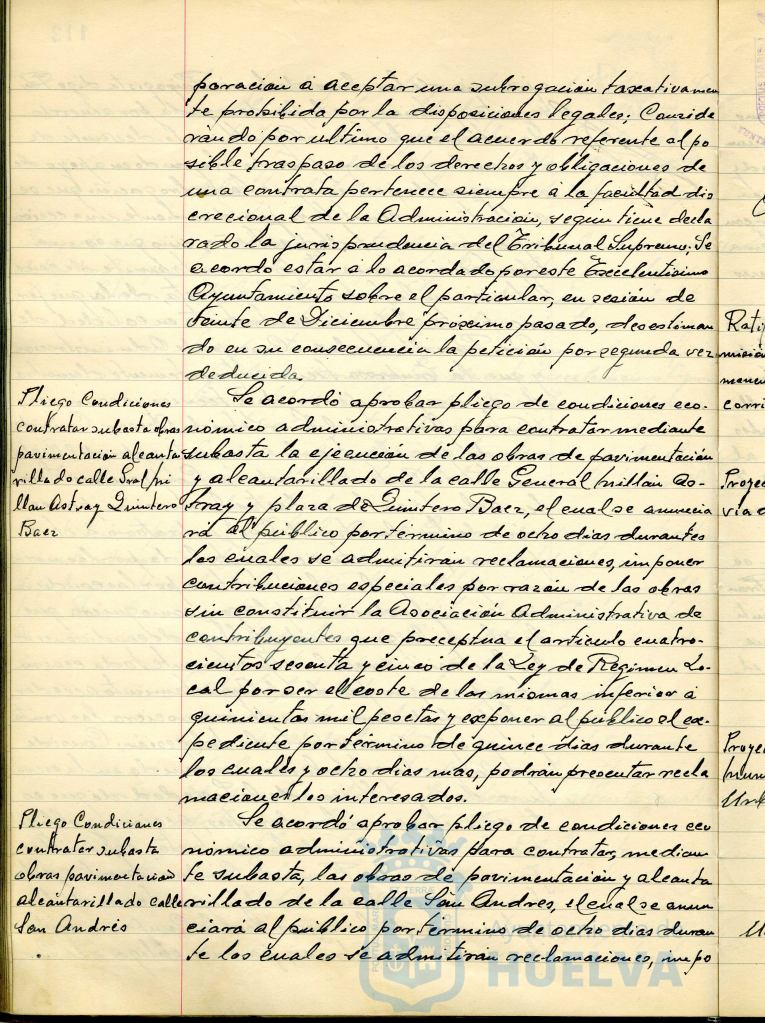 poración a aceptar una subrogación taxativamen
te prohibida por la disposiciones legales; Conside
rando por ultimo que el acuerdo referente al po
sible traspaso de los derechos y obligaciones de
una contrata pertenece siempre á la facultad dis
crecional de la Administración, segun tiene decla
rado la jurisprudencia del Tribunal Supremo; Se
acordo estar á lo acordado por este Excelentisimo
Ayuntamiento sobre el particular, en sesión de
veinte de Diciembre próximo pasado, desestiman
do en su consecuencia la petición por segunda vez
deducida.
Pliego Condiciones
contratar subasta obras
pavimentación alcanta
rillado calle Gral Mi
llan Astray Quintero
Baez
Se acordó aprobar pliego de condiciones eco-
nómico administrativas para contratar mediante
subasta la ejecución de las obras de pavimentación
y alcantarillado de la calle General Millán As-
tray y plaza de Quintero Baez, el cual se anuncia
rá al público por término de ocho dias durantes
los cuales se admitirán reclamaciones, imponer
contribuciones especiales por razón de las obras
sin constituir la Asociación Administrativa de
contribuyentes que preceptua el articulo cuatro-
cientos sesenta y cinco de la Ley de Régimen Lo-
cal por ser el coste de las mismas inferior á
quinientas mil pesetas y exponer al público el ex-
pediente por término de quince dias durante
los cuales y ocho dias mas, podrán presentar recla
maciones los interesados.
Pliego Condiciones
contratar subasta
obras pavimentación
alcantarillado calle
San Andrés
Se acordó aprobar pliego de condiciones eco
nómico administrativas para contratar, median
te subasta, las obras de pavimentación y alcanta
rillado de la calle San Andres, el cual se anun
ciará al público por término de ocho dias duran
te los cuales se admitirán reclamaciones, impo
HUELVA